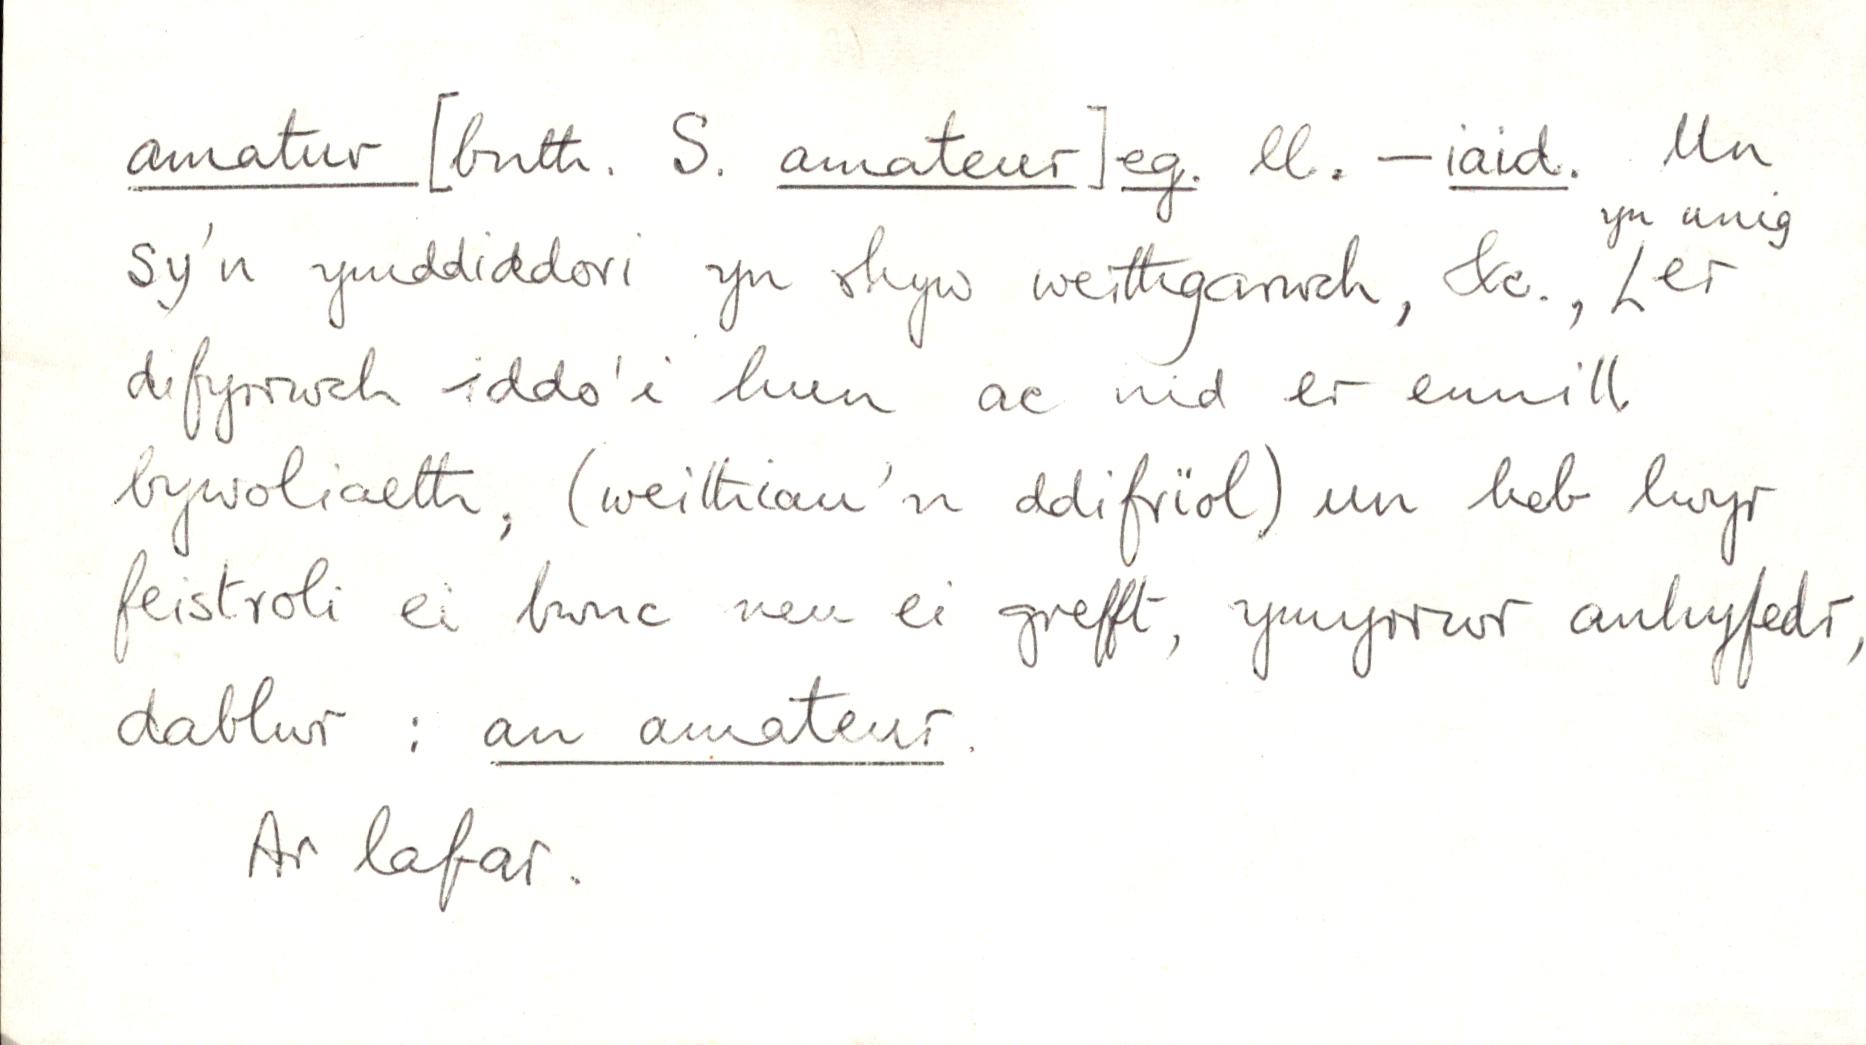 amatur [bnth. S. amateur] eg. ll. –iaid. Un
sy'n ymddiddori yn rhyw weithgarwch, &c., yn unig er
difyrrwch iddo'i hun ac nid er ennill
bywoliaeth, (weithiau'n ddifrïol) un heb lwyr
feistroli ei bwnc neu ei grefft, ymyrrwr anhyfedr,
dablwr : an amateur.
Ar lafar.